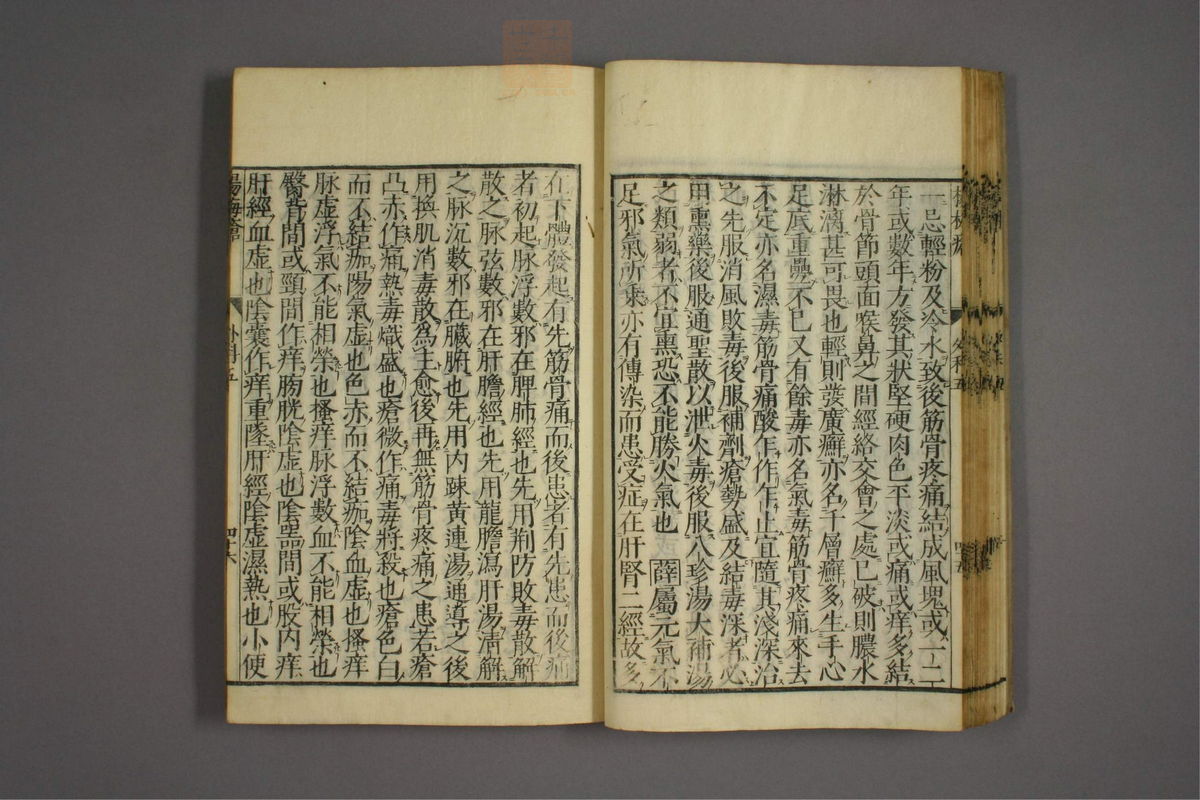 一忌輕粉及冷水致後筋骨疼痛結成風塊或一二
年或數年方發其狀堅硬肉色平淡或痛或痒多結
於骨節頭面喉鼻之間經絡交會之處已破則膿水
淋漓甚可畏也輕則發廣癬亦名千層癬多生手心
足底重疊不已又有餘毒亦名氣毒筋骨疼痛來去
不定亦名濕毒筋骨痛酸乍作乍止宜隨其淺深治
之先服消風敗毒後服補劑瘡勢盛及結毒深者必
用熏藥後服通聖散以泄火毒後服八珍湯大補湯
之類弱者不宜熏恐不能勝火氣也 薛屬元氣不
足邪氣所乘亦有傳染而患受症在肝腎二經故多
在下體發起有先筋骨痛而後患者有先患而後痛
者初起脉浮數邪在脾肺經也先用荆防敗毒散解
散之脉弦數邪在肝膽經也先用龍膽瀉肝湯清解
之脉沉數邪在臟腑也先用内踈黄連湯通導之後
用換肌消毒散為主愈後再無筋骨疼痛之患若瘡
凸赤作痛熱毒熾盛也瘡微作痛毒將殺也瘡色白
而不結痂陽氣虛也色赤而不結痂陰血虛也搔痒
脉虛浮氣不能相榮也搔痒脉浮數血不能相榮也
臀背間或頸間作痒膀胱陰虛也陰器間或股内痒
肝經血虛也陰囊作痒重墜肝經陰虛濕熱也小便
楊梅瘡 外科五 四十六